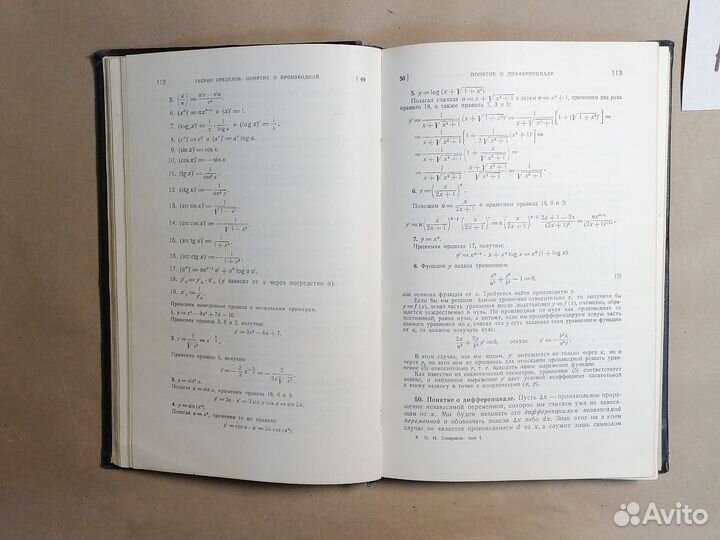 112 ТЕОРИЯ ПРЕДЕЛОВ. ПОНЯТИЕ О ПРОИЗВОДНОЙ [49
5. (u/v)' = (u'v − v'u)/v².
6. (xⁿ)' = nxⁿ⁻¹ и (x)' = 1.
7. (logₐ x)' = 1/x · 1/log a и (log x)' = 1/x.
8. (eˣ)' = eˣ и (aˣ)' = aˣ log a.
9. (sin x)' = cos x.
10. (cos x)' = − sin x.
11. (tg x)' = 1/cos² x.
12. (ctg x)' = − 1/sin² x.
13. (arc sin x)' = 1/√(1 − x²).
14. (arc cos x)' = − 1/√(1 − x²).
15. (arc tg x)' = 1/(1 + x²).
16. (arc ctg x)' = − 1/(1 + x²).
17. (uᵛ)' = vuᵛ⁻¹ u' + uᵛ log u v'.
18. y'ₓ = y'ᵤ · u'ₓ (y зависит от x через посредство u).
19. x'ᵧ = 1/y'ₓ.
Применим выведенные правила к нескольким примерам.
1. y = x³ − 3x² + 7x − 10.
Применяя правила 3, 6 и 2, получим:
y' = 3x² − 6x + 7.
Применяя правило 6, получим:
4. y = sin² x.
Полагая u = sin x, применим правила 18, 6 и 9:
y' = 2u · u' = 2 sin x cos x = sin 2x.
5. y = sin (x²).
Полагая u = x², применим те же правила:
y' = cos u · u' = 2x cos (x²).
50] ПОНЯТИЕ О ДИФФЕРЕНЦИАЛЕ 113
5. y = log (x + √(1 + x²)).
Полагая сначала u = x + √(x² + 1) и затем v = x² + 1, применим два раза
правило 18, а также 7, 3 и 6:
y' = 1/(x + √(x² + 1)) (x + √(x² + 1))' = 1/(x + √(x² + 1)) [1 + (√(x² + 1))'] =
= 1/(x + √(x² + 1)) [1 + 1/(2√(x² + 1)) (x² + 1)'] =
= 1/(x + √(x² + 1)) (1 + x/√(x² + 1)) =
= 1/(x + √(x² + 1)) · (x + √(x² + 1))/√(x² + 1) = 1/√(x² + 1).
6. y = (x/(2x + 1))ⁿ.
Положим u = x/(2x + 1) и применим правила 18, 6 и 5:
y' = n (x/(2x + 1))ⁿ⁻¹ (x/(2x + 1))' = n (x/(2x + 1))ⁿ⁻¹ (2x + 1 − 2x)/(2x + 1)² = nxⁿ⁻¹/(2x + 1)ⁿ⁺¹.
7. y = xˣ.
Применяя правило 17, получим:
y' = xˣ⁻¹ · x + xˣ log x = xˣ (1 + log x).
8. Функция y задана уравнением
x²/a² + y²/b² − 1 = 0, (5)
как неявная функция от x. Требуется найти производную y'.
Если бы мы решали данное уравнение относительно y, то получили бы
y = f (x), левая часть уравнения после подстановки y = f (x), очевидно, обращается тождественно в нуль. Но производная от нуля как от частного случая
постоянной, равна нулю, а потому, если мы продифференцируем левую часть
данного уравнения по x, считая что y есть заданная этим уравнением функция
от x, то должны получить нуль:
2x/a² + 2y/b² y' = 0, откуда y' = − b²x/a²y.
В этом случае, как мы видим, y' выражается не только через x, но и
через y, но зато нам не пришлось для отыскания производной решать уравнение (5) относительно y, т. е. находить явное выражение функции.
Как известно из аналитической геометрии, уравнению (5) соответствует
эллипс, и найденное выражение y' дает угловой коэффициент касательной
к этому эллипсу в точке с координатами (x, y).
50. Понятие о дифференциале. Пусть Δx — произвольное приращение независимой переменной, которое мы считаем уже не зависящим от x. Мы будем называть его дифференциалом независимой
переменной и обозначать знаком Δx либо dx. Этот знак ни в коем
случае не является произведением d на x, а служит лишь символом
8 В. И. Смирнов, том I
Avito